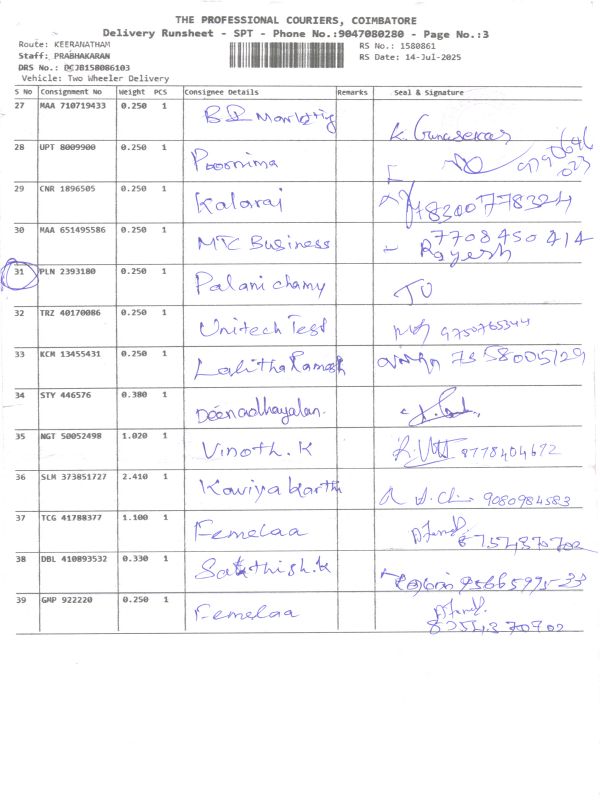 THE PROFESSIONAL COURIERS, COIMBATORE
Delivery Runsheet - SPT - Phone No.:9047080280 - Page No.:3
Route: KEERANATHAM RS No.: 1580861
Staff: PRABHAKARAN RS Date: 14-Jul-2025
DRS No.: DCJB158086103
Vehicle: Two Wheeler Delivery
S No Consignment No Weight PCS Consignee Details Remarks Seal & Signature
27 MAA 710719433 0.250 1 K. Gunasekar
28 UPT 8009900 0.250 1 Poornima
29 CNR 1896505 0.250 1 Kalaraj 8300778324
30 MAA 651495586 0.250 1 MTC Business 7708450414
Rajesh
31 PLN 2393180 0.250 1 Palanichamy
32 TRZ 40170086 0.250 1 Unitech Test 9750765344
33 KCM 13455431 0.250 1 Lalitha Ramesh 7358005129
34 STY 446576 0.380 1 Deenadhayalan.
35 NGT 50052498 1.020 1 Vinoth.K 8778404672
36 SLM 373851727 2.410 1 Kaviya Karthi 9080984583
37 TCG 41788377 1.100 1 Femelaa
38 DBL 410893532 0.330 1 Sakthish.k
39 GMP 922220 0.250 1 Femelaa